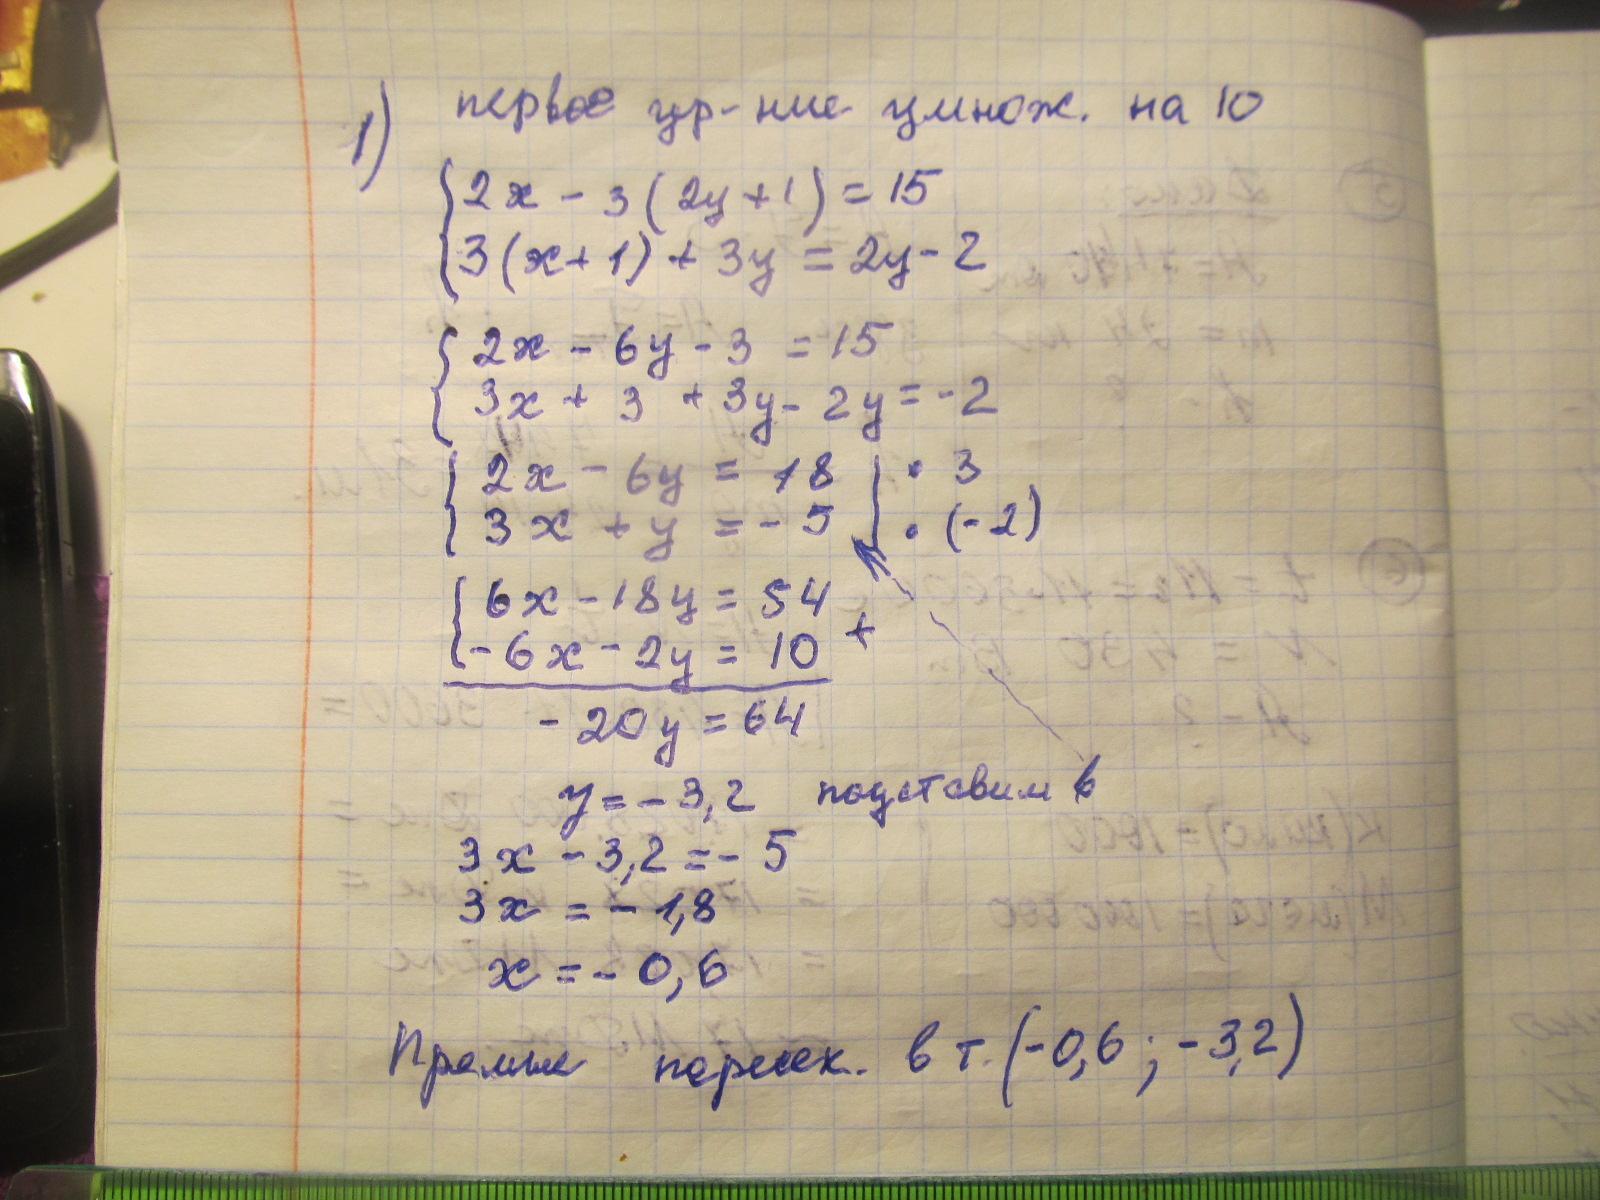 1) первое ур-ние умнож. на 10
2x - 3(2y+1) = 15
3(x+1) + 3y = 2y - 2
2x - 6y - 3 = 15
3x + 3 + 3y - 2y = -2
2x - 6y = 18 | · 3
3x + y = -5 | · (-2)
6x - 18y = 54
-6x - 2y = 10 +
-20y = 64
y = -3,2 подставим в
3x - 3,2 = -5
3x = -1,8
x = -0,6
Прямые пересек. в т. (-0,6 ; -3,2)